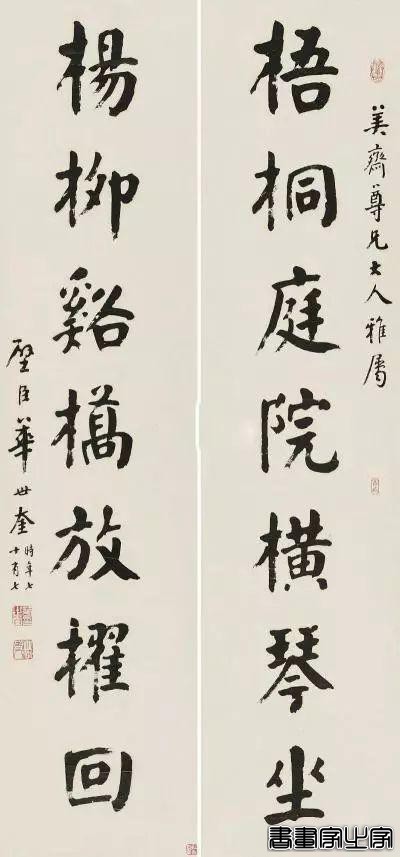 美齋尊兄大人雅屬
梧桐庭院橫琴坐
楊柳谿橋放櫂回
璧臣華世奎
時年七
十有七
書畫家之家